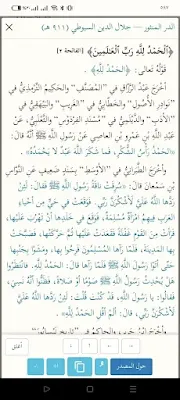 الدر المنثور — جلال الدين السيوطي (٩١١ هـ)
﴿ٱلۡحَمۡدُ لِلَّهِ رَبِّ ٱلۡعَٰلَمِينَ﴾ [الفاتحة ٢]
قَوْلُهُ تَعَالَى: ﴿الحَمْدُ لِلَّهِ﴾ .
أخْرَجَ عَبْدُ الرَّزّاقِ في "المُصَنَّفِ" والحَكِيمُ التِّرْمِذِيُّ في
"نَوادِرِ الأُصُولِ" والخَطّابِيُّ في "الغَرِيبِ" والبَيْهَقِيُّ في
"الأدَبِ" والدَّيْلَمِيُّ في "مُسْنَدِ الفِرْدَوْسِ" والثَّعْلَبِيُّ، عَنْ
عَبْدِ اللَّهِ بْنِ عَمْرِو بْنِ العاصِي عَنْ رَسُولِ اللَّهِ ﷺ أنَّهُ قالَ:
«الحَمْدُ رَأْسُ الشُّكْرِ، فَما شَكَرَ اللَّهَ عَبْدٌ لا يَحْمَدُهُ» .
وأخْرَجَ الطَّبَرانِيُّ في "الأوْسَطِ" بِسَنَدٍ ضَعِيفٍ عَنِ النَّوّاسِ
بْنِ سَمْعانَ قالَ: «سُرِقَتْ ناقَةُ رَسُولِ اللَّهِ ﷺ فَقالَ: لَئِنْ
رَدَّها اللَّهُ عَلَيَّ لَأشْكُرَنَّ رَبِّي. فَوَقَعَتْ في حَيٍّ مِن أحْياءِ
العَرَبِ فِيهِمُ امْرَأةٌ مُسْلِمَةٌ، فَوَقَعَ في خَلَدِها أنْ تَهْرُبَ عَلَيْها،
فَرَأتْ مِنَ القَوْمِ غَفْلَةً فَقَعَدَتْ عَلَيْها ثُمَّ حَرَّكَتْها، فَصَبَّحَتْ
بِها المَدِينَةَ، فَلَمّا رَآها المُسْلِمُونَ فَرِحُوا بِها، ومَشَوْا بِجَنْبِها
حَتّى أتَوْا رَسُولَ اللَّهِ ﷺ فَلَمّا رَآها قالَ: الحَمْدُ لِلَّهِ. فانْتَظَرُوا
هَلْ يُحْدِثُ رَسُولُ اللَّهِ ﷺ صَوْمًا أوْ صَلاةً، فَظَنُّوا أنَّهُ نَسِيَ،
فَقالُوا: يا رَسُولَ اللَّهِ، قَدْ كُنْتَ قُلْتَ: لَئِنْ رَدَّها اللَّهُ عَلَيَّ
لَأشْكُرَنَّ رَبِّي، قالَ: ألَمْ أقُلِ: الحَمْدُ لِلَّهِ» .
وأخْرَجَ ابْنُ جَرِيرٍ، والحاكِمُ في "تارِيخِ نَيْسابُورَ"
أغلق
حول المصدر